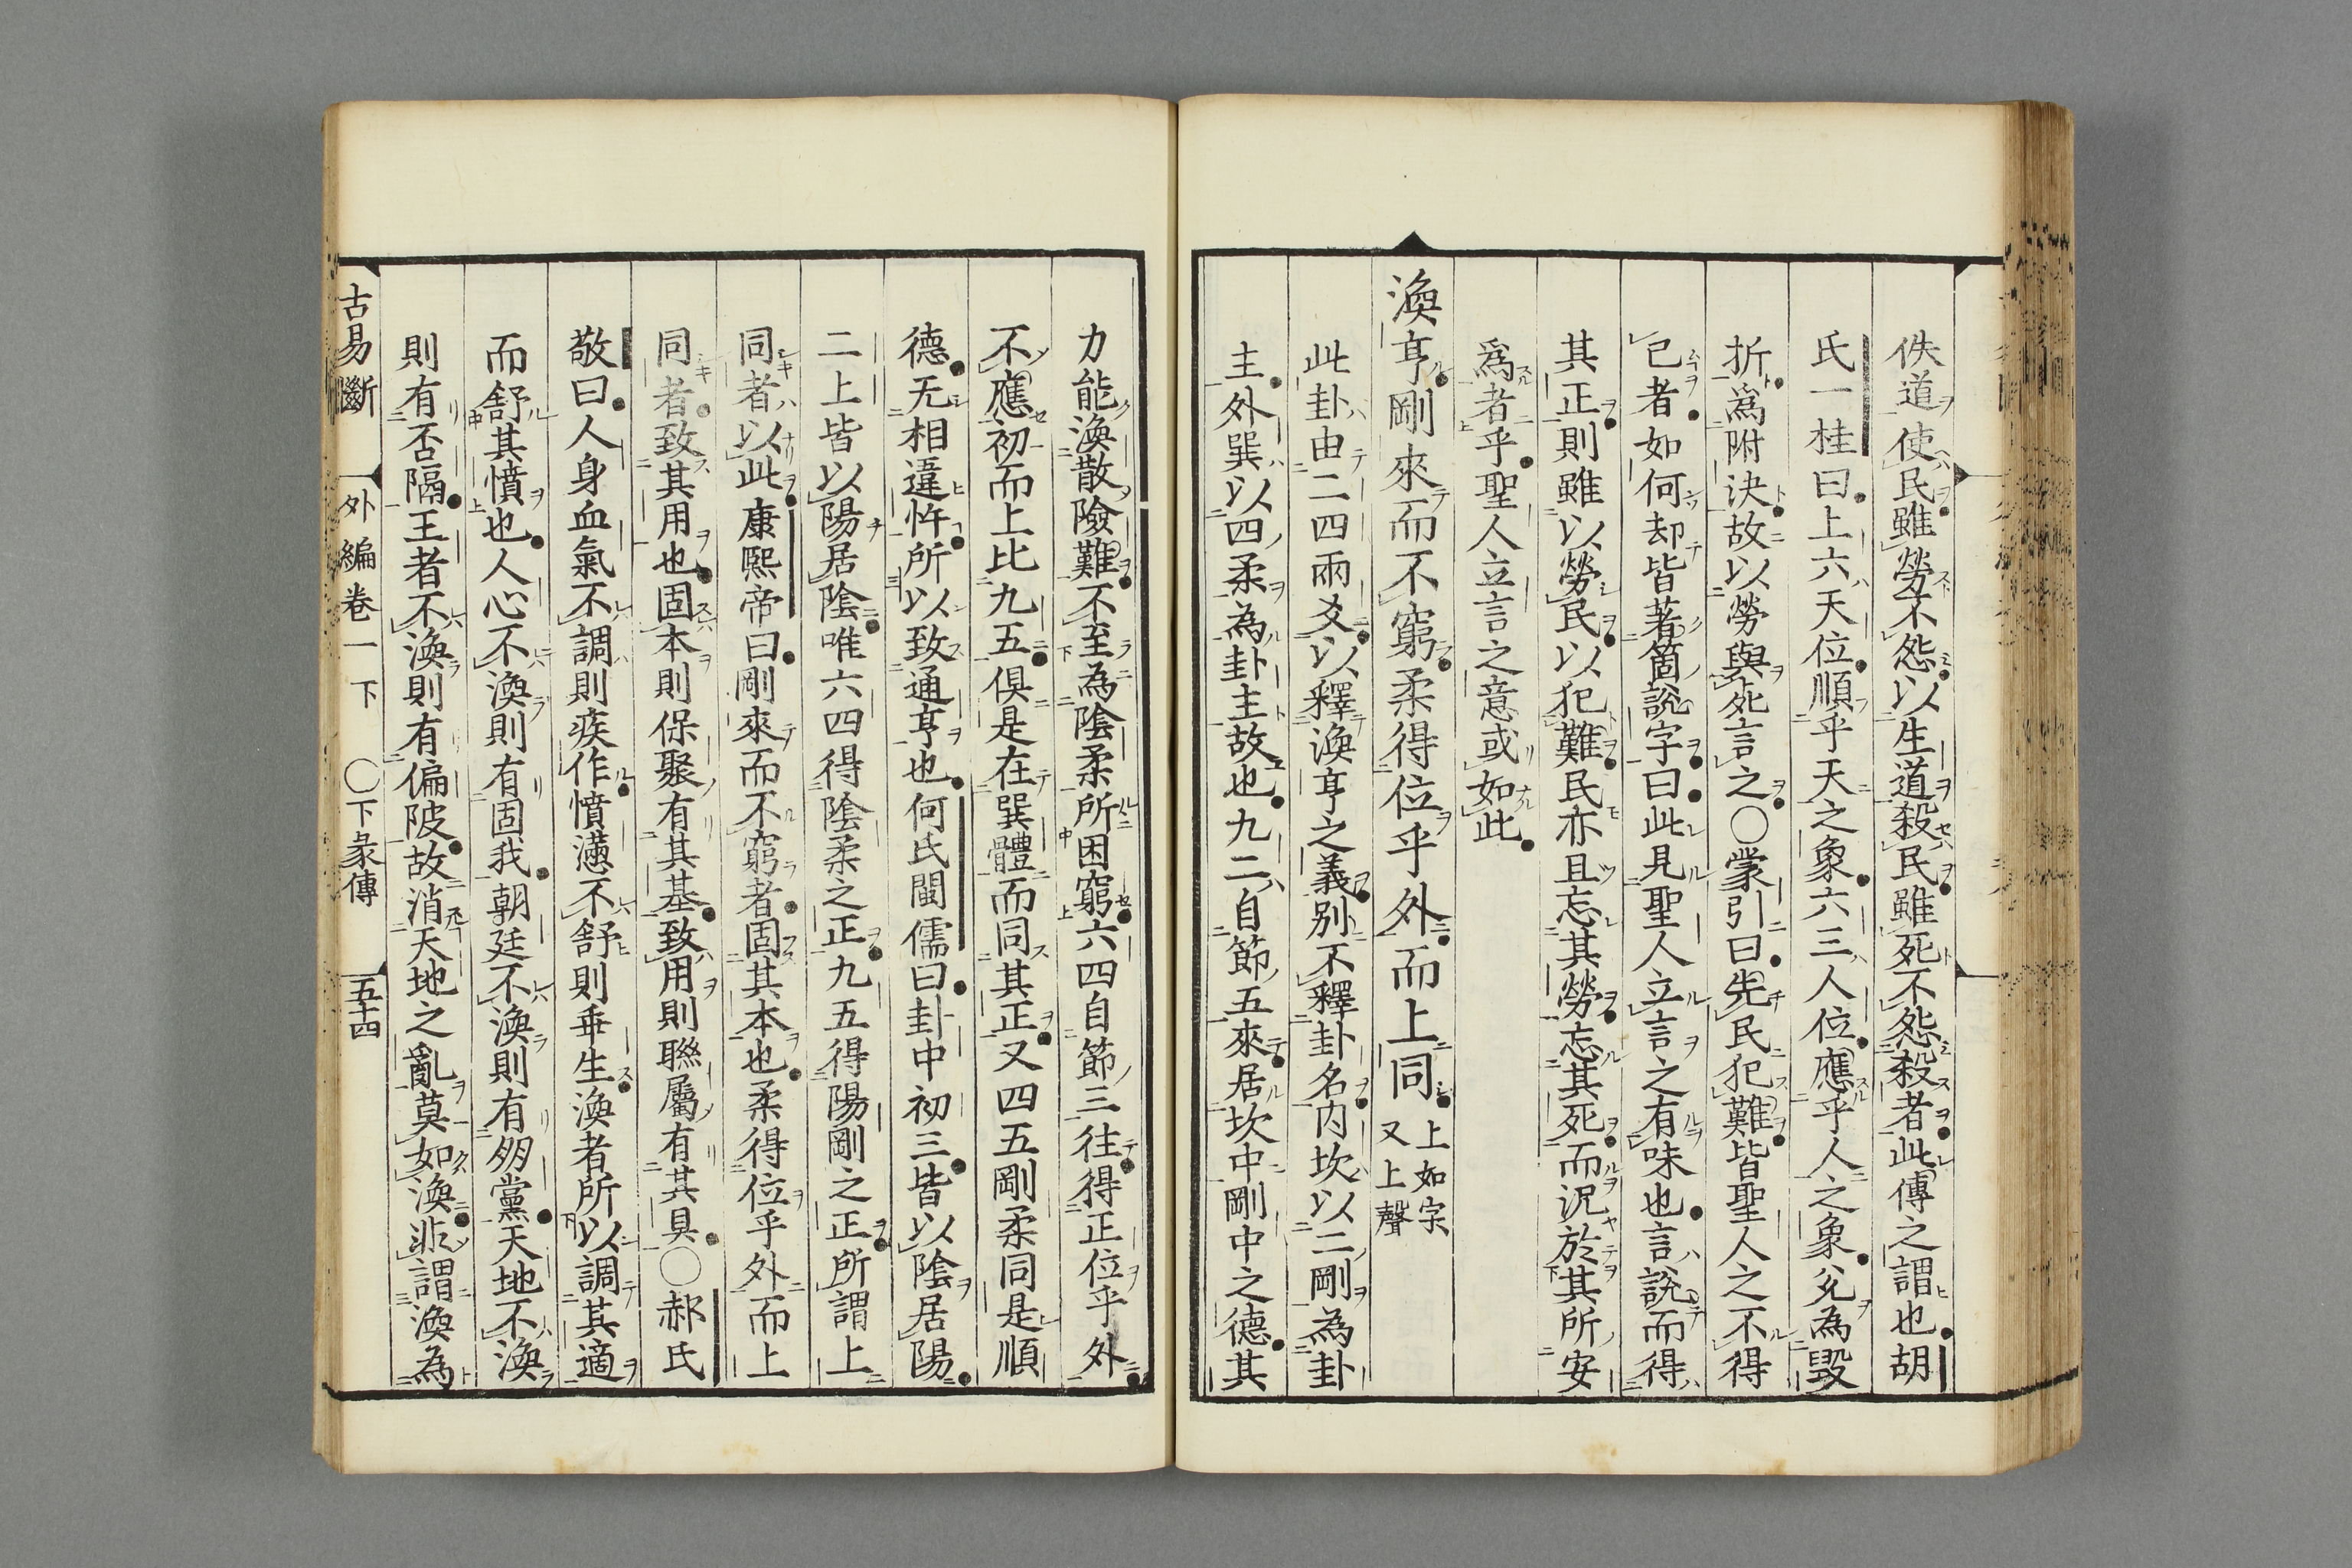 佚道使民雖勞不怨以生道殺民雖死不怨殺者此傳之謂也胡
氏一桂曰上六天位順乎天之象六三人位應乎人之象兌為毀
折爲附決故以勞與死言之○蒙引曰先民犯難皆聖人之不得
已者如何却皆著箇說字曰此見聖人立言之有味也言說而得
其正則雖以勞民以犯難民亦且忘其勞忘其死而况於其所安
爲者乎聖人立言之意或如此
渙亨剛來而不窮柔得位乎外而上同上如字又上聲
此卦由二四兩爻以釋渙亨之義別不釋卦名內坎以二剛為卦
主外巽以四柔為卦主故也九二自節五來居坎中剛中之德其
力能渙散險難不至為陰柔所困窮六四自節三往得正位乎外
不應初而上比九五俱是在巽體而同其正又四五剛柔同是順
德无相違忤所以致通亨也何氏閩儒曰卦中初三皆以陰居陽
二上皆以陽居陰唯六四得陰柔之正九五得陽剛之正所謂上
同者以此康熙帝曰剛來而不窮者固其本也柔得位乎外而上
同者致其用也固本則保聚有其基致用則聯屬有其具○郝氏
敬曰人身血氣不調則疾作憤懣不舒則乖生渙者所以調其適
而舒其憤也人心不渙則有固我朝廷不渙則有朋黨天地不渙
則有否隔王者不渙則有偏陂故消天地之亂莫如渙非謂渙為
古易斷　外編卷一下　○下彖傳　五十四